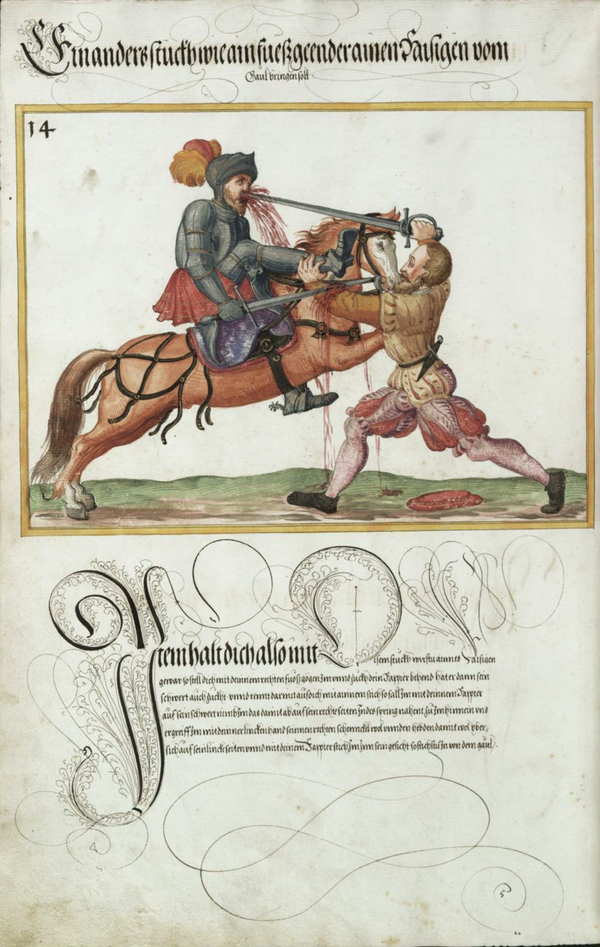 Ein anders stuckh wie ain fuesz geender ainen Raisigen vom
Gaul bringen soll
14
Item halt dich also mit disem stuckh wirstu aines Raisigen
gewar so stell dich mit deinnem rechten fuosz gogen Im unnd zuckh dein Rappier behend hat er dann sein
schwert auch zuckt unnd rennt darmit auf dich mit ainnem stich so fall Im mit deinnem Rappier
auf sein schwert nim Im das damit ab auf sein rechte seitten In des spring nahent zu Im hinnein und
ergreiff Im mit deinner lincken hand seinnen rechten schennckl wol unnden heb den damit wol yber
sich auf sein lincke seiten unnd mit deinem Rappier stich Im Inn sein gesicht so stichstu In von dem gaul/.